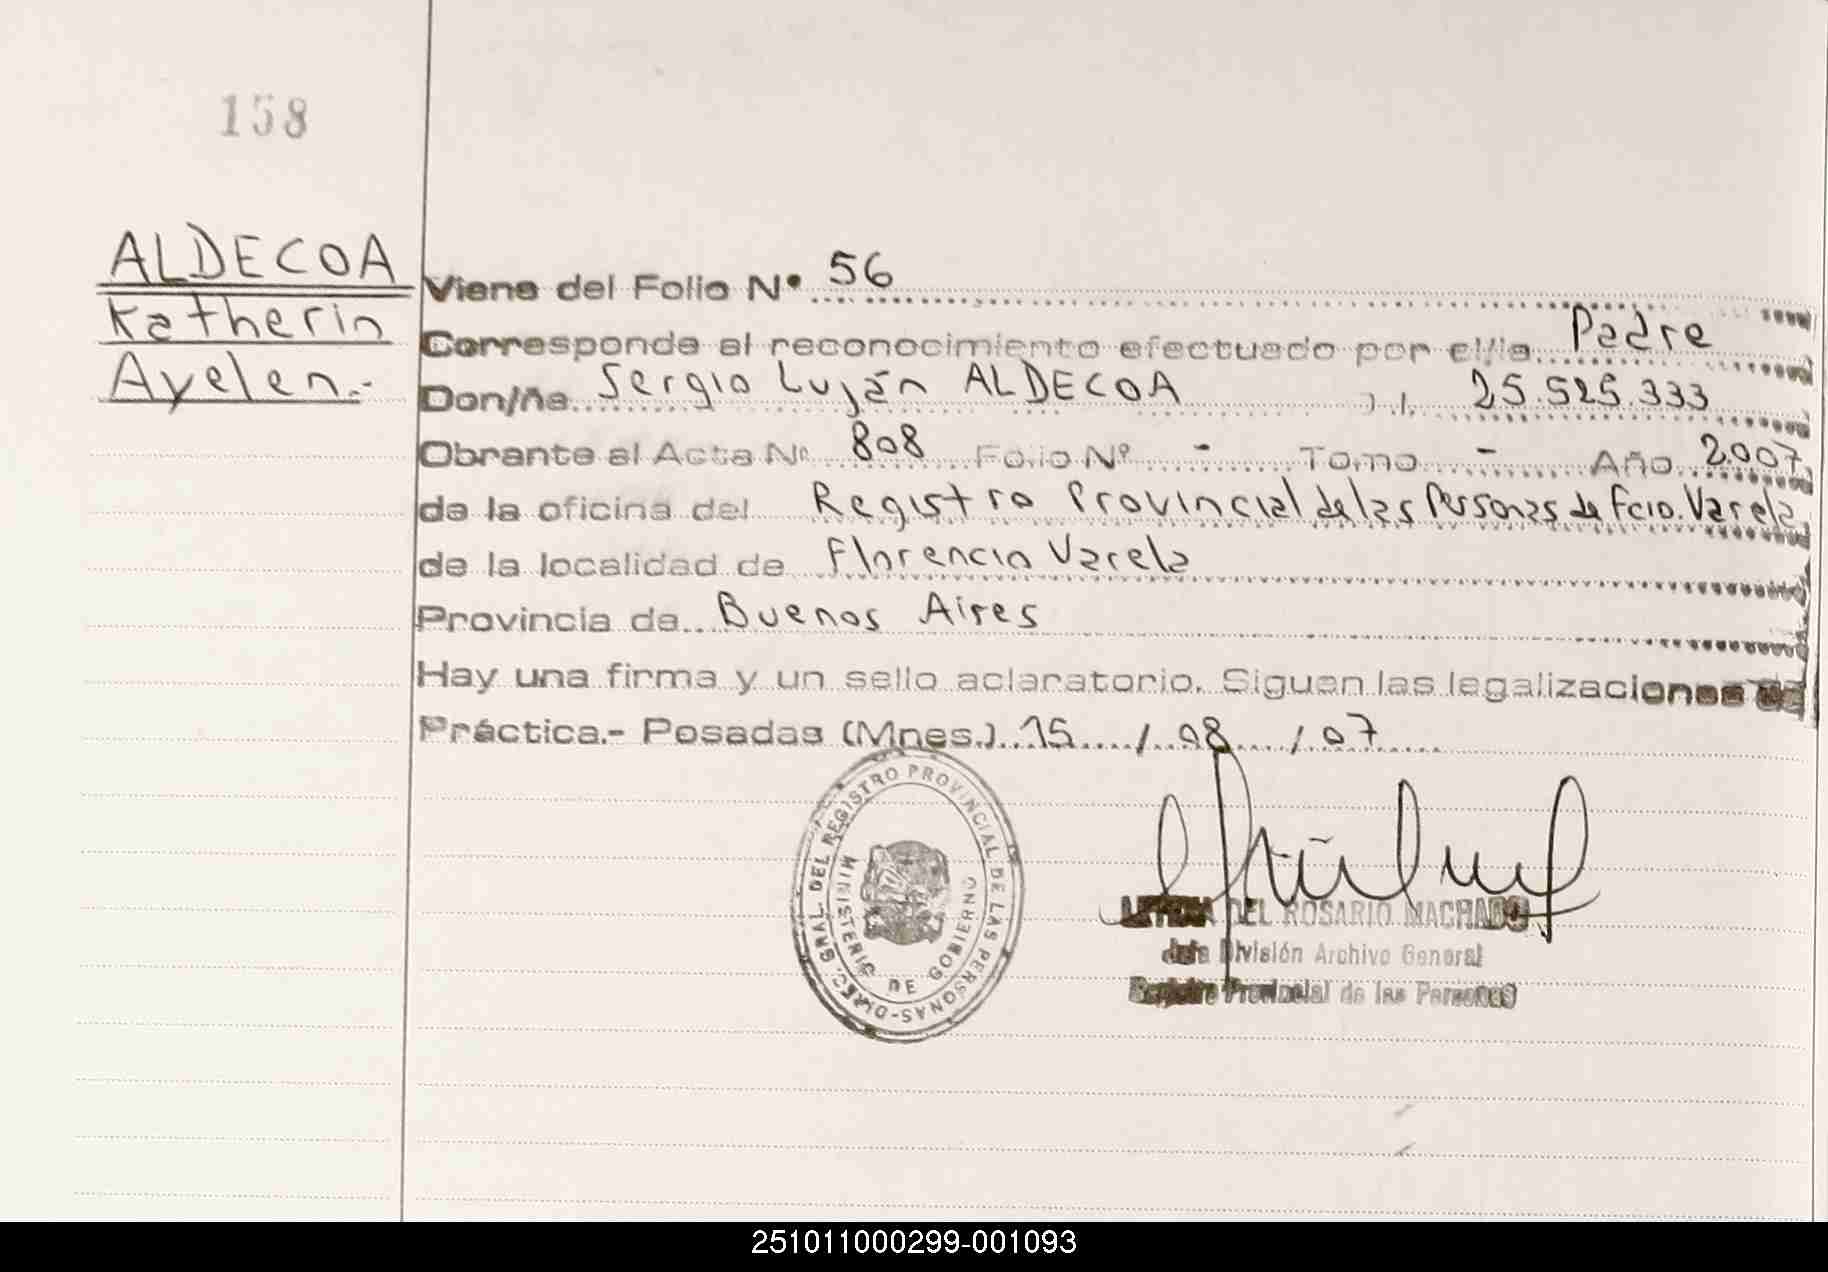 158
ALDECOA
Katherin
Ayelen.-
Viene del Folio Nº 56
Corresponde al reconocimiento efectuado por el/la Padre
Don/ña Sergio Luján ALDECOA 25.525.333
Obrante al Acta Nº 808 Folio Nº - Tomo - Año 2.007,
de la oficina del Registro Provincial de las Personas de Fcio. Varela
de la localidad de Florencio Varela
Provincia de Buenos Aires
Hay una firma y un sello aclaratorio. Siguen las legalizaciones de
Práctica.- Posadas (Mnes.) 15 / 08 / 07
DIREC. GRAL. DEL REGISTRO PROVINCIAL DE LAS PERSONAS-
MINISTERIO DE GOBIERNO
DEL ROSARIO MACHADO
Jefa División Archivo General
Registro Provincial de las Personas
251011000299-001093